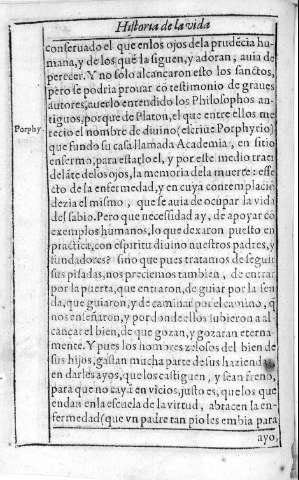 Historia de la vida
conseruado el que enlos ojos dela prudẽcia hu-
mana, y de los quẽ la siguen, y adoran, auia de
perecer. Y no solo alcançaron esto los sanctos,
pero se podria prouar cõ testimonio de graues
autores, auerlo entendido los Philosophos an-
tiguos, porque de Platon, el que entre ellos me
Porphy.
recio el nombre de diuino (escriue Porphyrio)
que fundo su casa llamada Academia, en sitio
enfermo, para estarlo el, y por este medio traer
delãte delos ojos, la memoria dela muerte: effe
cto de la enfermedad, y en cuya contemplaciõ
dezia el mismo, que se auia de ocupar la vida
del sabio. Pero que necessidad ay, de apoyar cõ
exemplos humanos, lo que dexaron puesto en
practica, con espiritu diuino nuestros padres, y
fundadores? sino que pues tratamos de seguir
sus pisadas, nos preciemos tambien, de entrar
por la puerta, que entraron, de guiar por la sen
da, que guiaron, y de caminar por el camino, q̃
nos enseñaron, y por donde ellos subieron a al
cançar el bien, de que gozan, y gozaran eterna
mente. Y pues los hombres zelosos del bien de
sus hijos, gastan mucha parte de sus haziendas
en darles ayos, que los castiguen, y sean freno,
para que no cayã en vicios, justo es, que los que
andan enla escuela de la virtud, abracen la en-
fermedad (que vn padre tan pio les embia para
ayo,